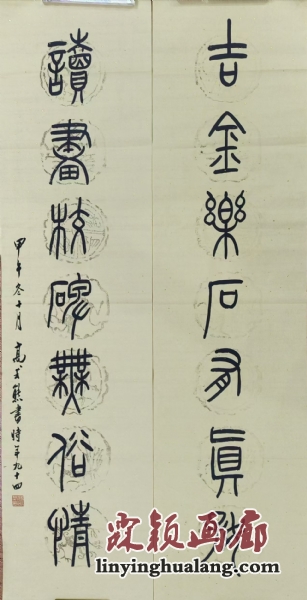 吉金樂石有真
讀畫校碑無俗情
甲午冬十月高式熊書時年九十四
霖颖画廊
linyinghualang.com